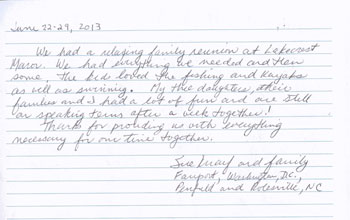 June 22-29, 2013
We had a relaxing family reunion at Lakecrest
Manor. We had everything we needed and then
some. The kids loved the fishing and kayaks
as well as swimming. My three daughters, their
families and I had a lot of fun and are still
on speaking terms after a week together!
Thanks for providing us with everything
necessary for our time together.
Sue and family
Fairport, Washington, D.C.,
Penfield and NC